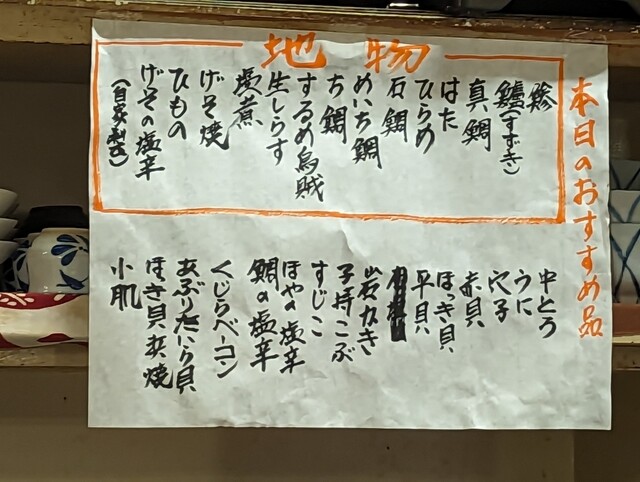 本日のおすすめ品
地物
鯵
鱸(すずき)
真鯛
はた
ひらめ
石鯛
めいち鯛
ち鯛
するめ烏賊
生しらす
塩煮
げそ焼
ひもの
げその塩辛
(自家製)
中とろ
うに
穴子
赤貝
ほっき貝
平貝
岩がき
子持こぶ
すじこ
ほやの塩辛
鯛の塩辛
くじらベーコン
あぶりたいら貝
ほき貝 焼
小肌